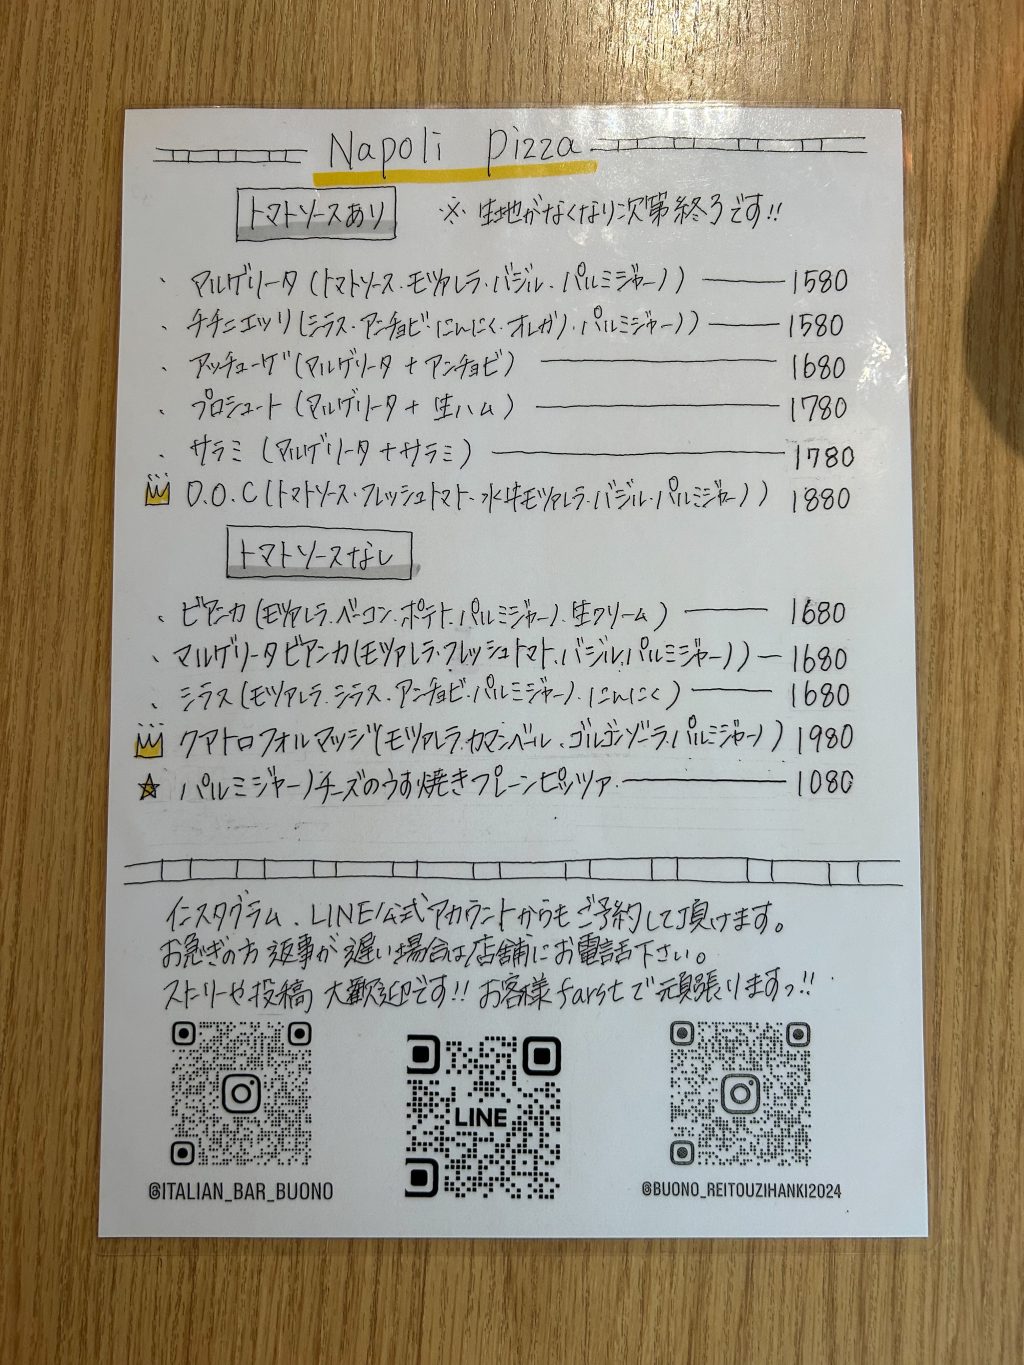 Napoli Pizza
トマトソースあり ※ 生地がなくなり次第終了です!!
・マルゲリータ(トマトソース・モツァレラ・バジル・パルミジャーノ) 1580
・チチニエッリ(シラス・アンチョビ・にんにく・オレガノ・パルミジャーノ) 1580
・アッチューゲ(マルゲリータ+アンチョビ) 1680
・プロシュート(マルゲリータ+生ハム) 1780
・サラミ(マルゲリータ+サラミ) 1780
D.O.C(トマトソース・フレッシュトマト・水牛モツァレラ・バジル・パルミジャーノ) 1880
トマトソースなし
・ビアンカ(モツァレラ・ベーコン・ポテト・パルミジャーノ・生クリーム) 1680
・マルゲリータビアンカ(モツァレラ・フレッシュトマト・バジル・パルミジャーノ) 1680
・シラス(モツァレラ・シラス・アンチョビ・パルミジャーノ・にんにく) 1680
クアトロフォルマッジ(モツァレラ・カマンベール・ゴルゴンゾーラ・パルミジャーノ) 1980
パルミジャーノチーズのうす焼きプレーンピッツァ 1080
インスタグラム、LINE公式アカウントからもご予約して頂けます。
お急ぎの方 返事が遅い場合は店舗にお電話下さい。
ストーリーや投稿 大歓迎です!! お客様farstで頑張りますっ!!
LINE
@ITALIAN_BAR_BUONO
@BUONO_REITOUZIHANKI2024